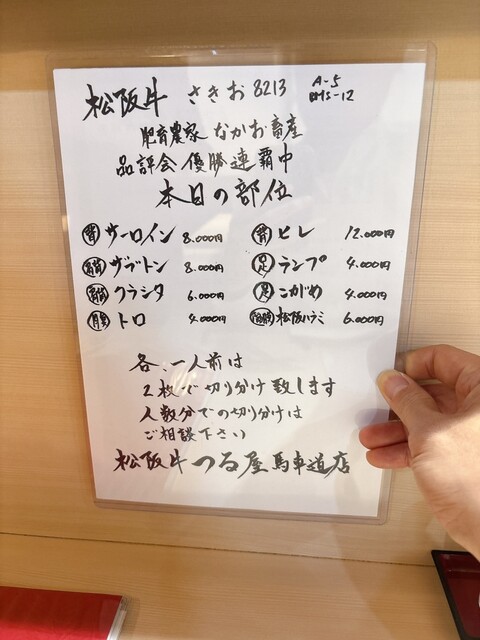 松阪牛 さきお8213 A-5
BMS-12
肥育農家 なかお畜産
品評会 優勝連覇中
本日の部位
背 サーロイン 8.000円 背 ヒレ 12.000円
肩 ザブトン 8.000円 足 ランプ 4.000円
肩 クラシタ 6.000円 足 こがめ 4.000円
肩 トロ 4.000円 松阪ハラミ 6.000円
各、一人前は
2枚で切り分け致します
人数分での切り分けは
ご相談下さい
松阪牛つる屋馬車道店